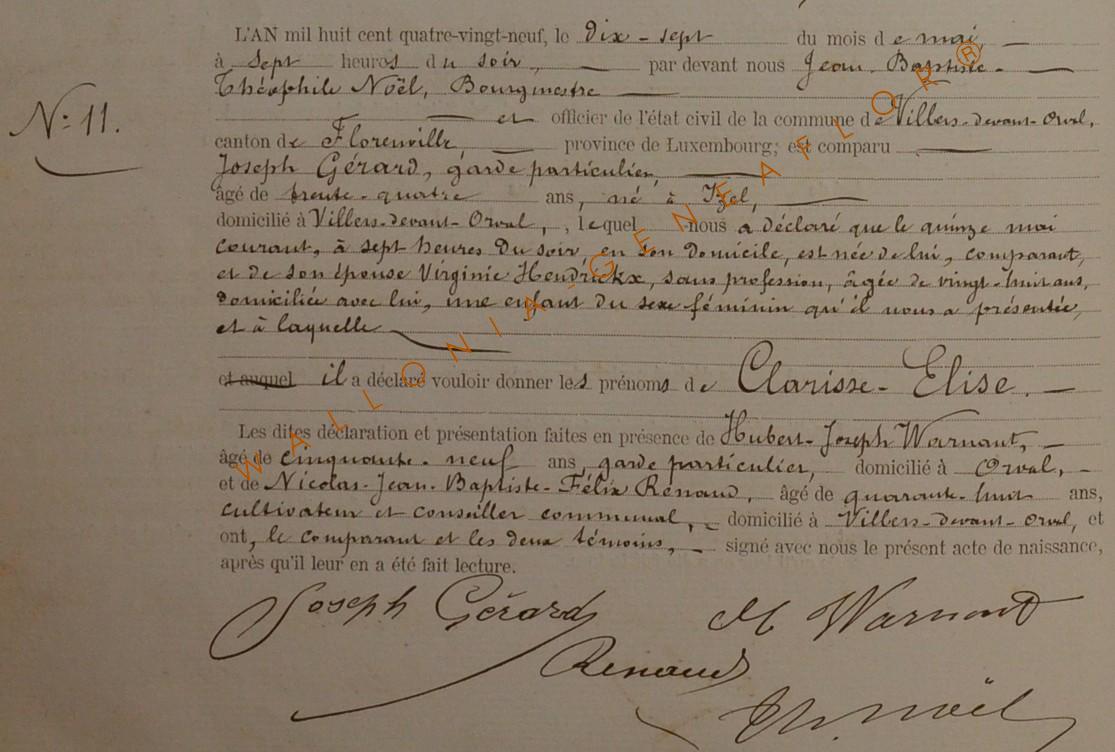 L'AN mil huit cent quatre-vingt-neuf, le dix-sept du mois de mai,
à sept heures du soir, par devant nous Jean-Baptiste-
Théophile Noël, Bourgmestre
et officier de l'état civil de la commune de Villers-devant-Orval,
N° 11.
canton de Florenville, province de Luxembourg; est comparu
Joseph Gérard, garde particulier,
âgé de trente-quatre ans, né à Izel,
domicilié à Villers-devant-Orval, , lequel nous a déclaré que le quinze mai
courant, à sept heures du soir, en son domicile, est née de lui, comparant,
et de son épouse Virginie Hendrickx, sans profession, âgée de vingt-huit ans,
domiciliée avec lui, une enfant du sexe féminin qu'il nous a présentée,
et à laquelle
et auquel il a déclaré vouloir donner les prénoms de Clarisse-Elise.
Les dites déclaration et présentation faites en présence de Hubert-Joseph Warnant,
âgé de cinquante-neuf ans, garde particulier, domicilié à Orval,
et de Nicolas-Jean-Baptiste-Félix Renaud, âgé de quarante-huit ans,
cultivateur et conseiller communal, domicilié à Villers-devant-Orval, et
ont, le comparant et les deux témoins, signé avec nous le présent acte de naissance,
après qu'il leur en a été fait lecture.
Joseph Gérard H Warnant
Renaud
Th. Noël
WALLONIA-GENEAFLOR®